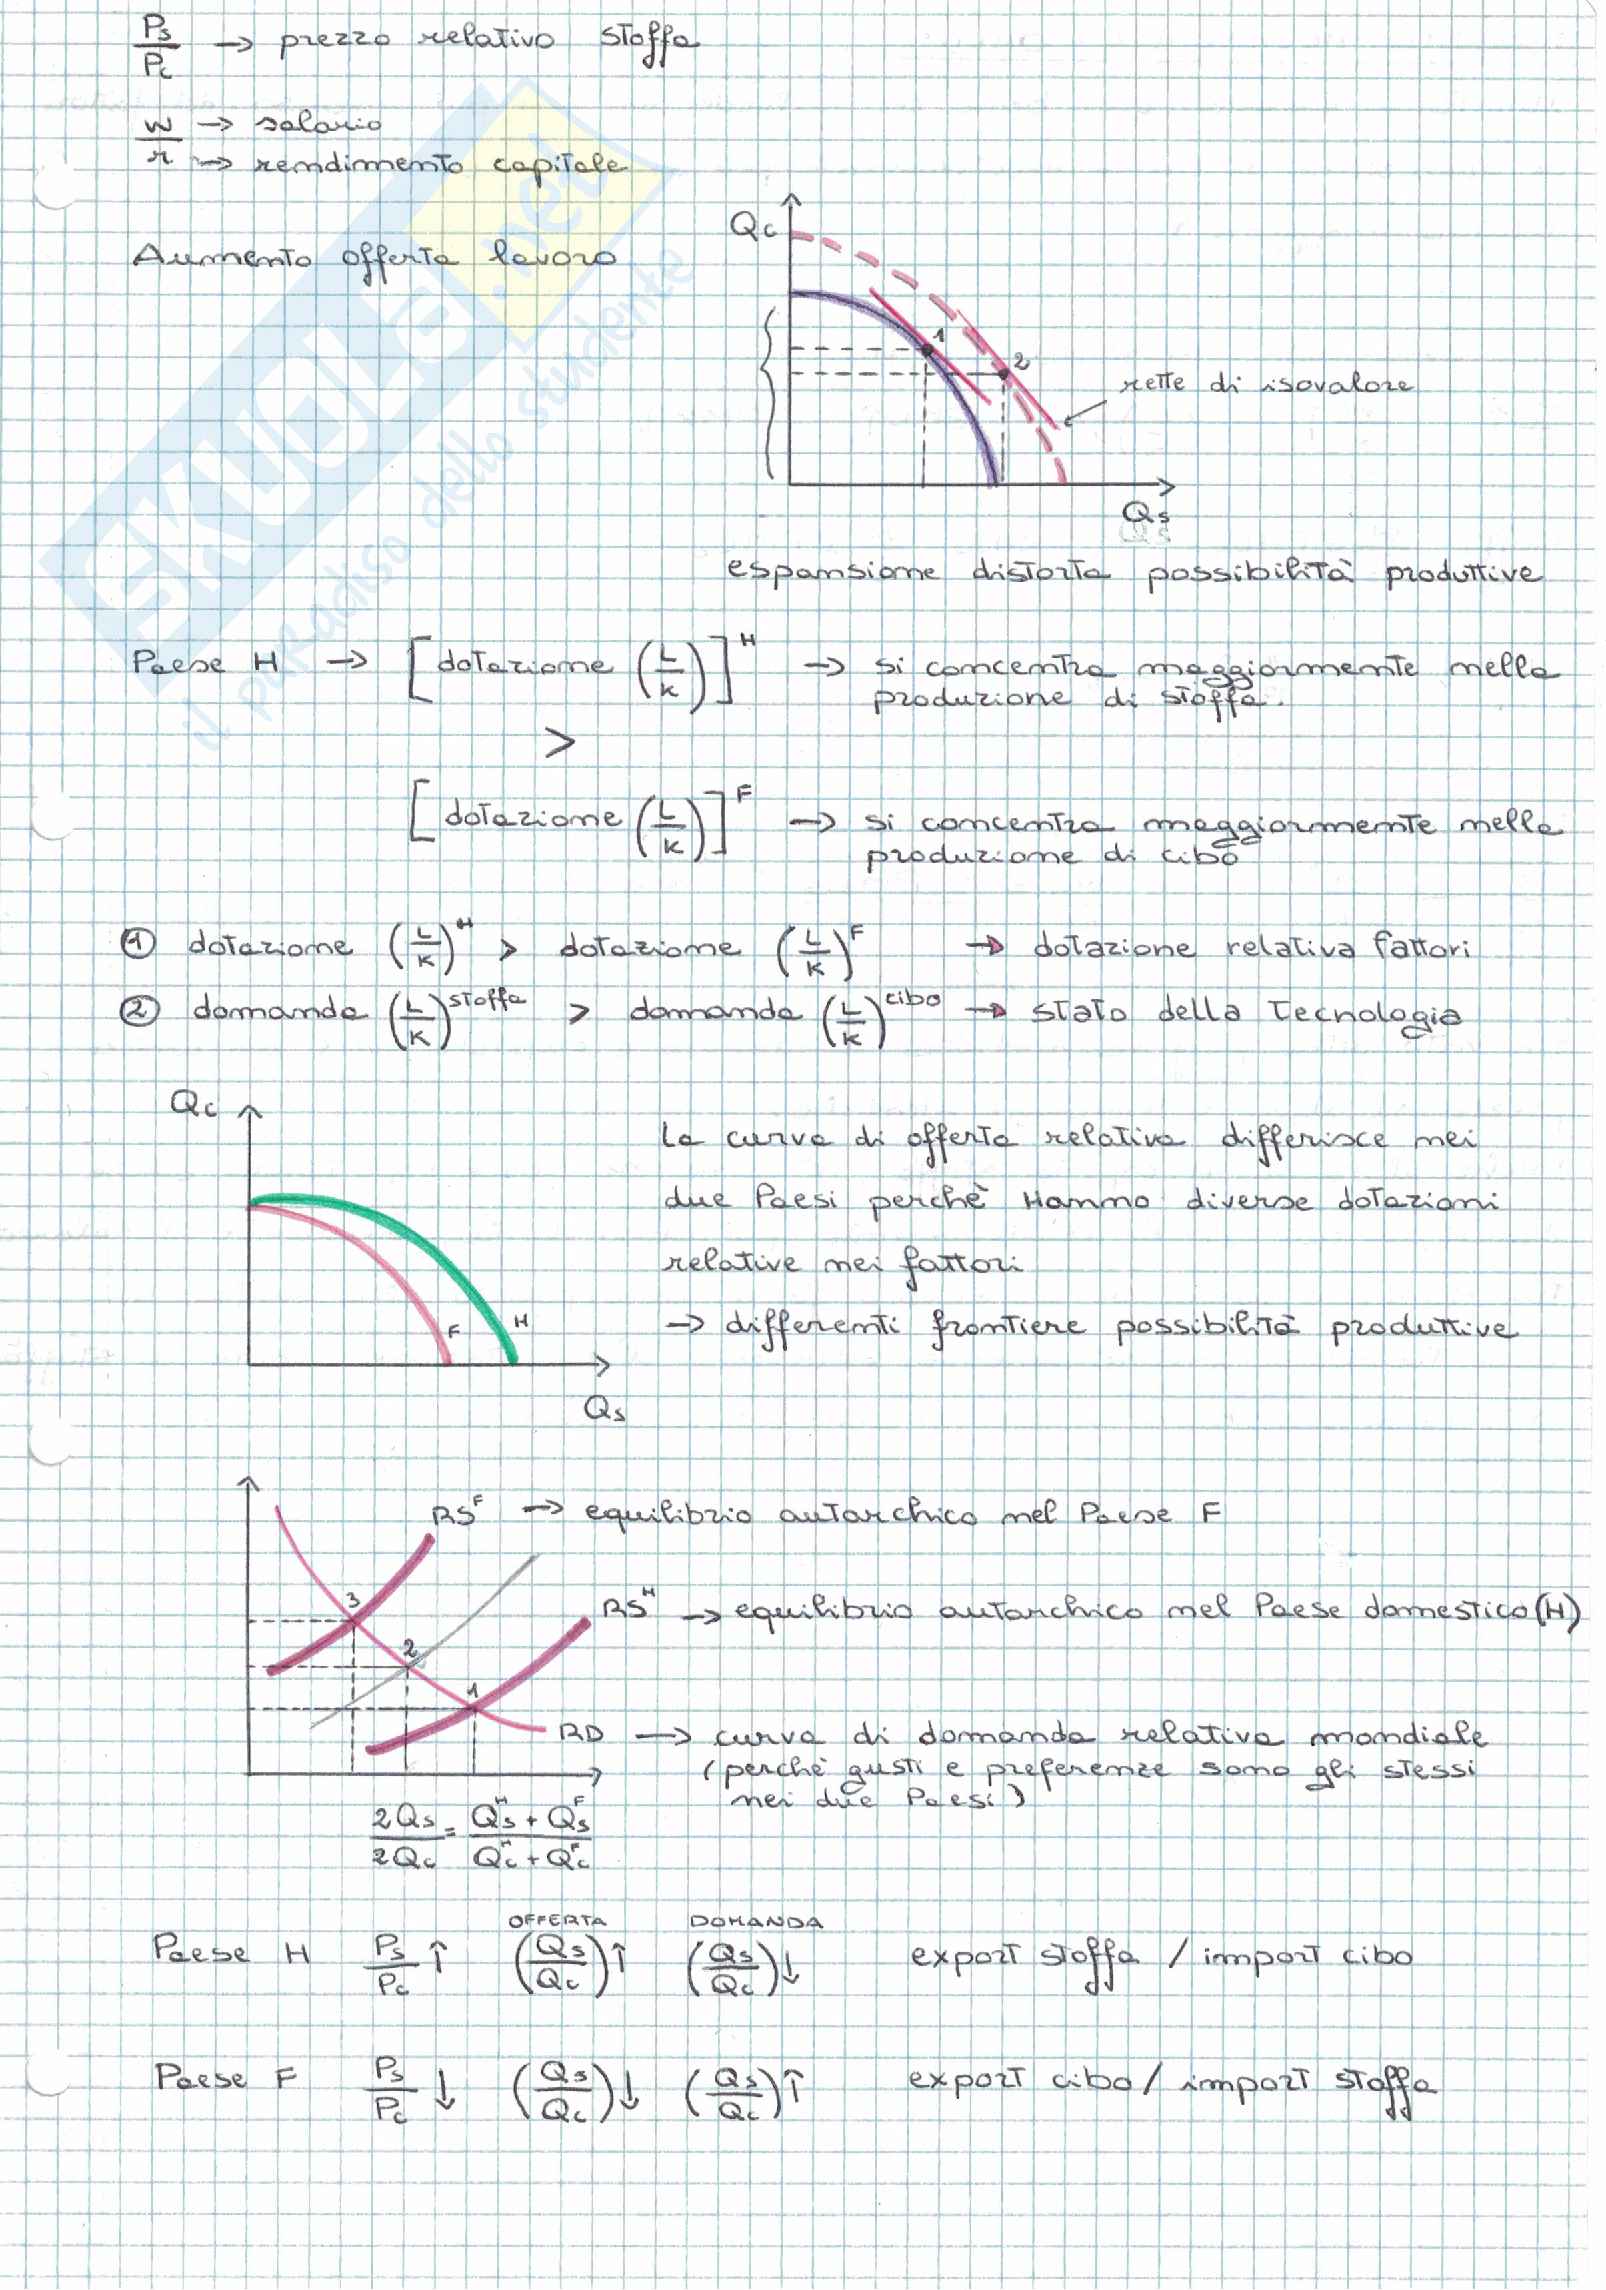 Ps/Pc → prezzo relativo stoffa
w → salario
r → rendimento capitale
SKUOLA.net
il paradiso dello studente
Aumento offerta lavoro
Qc
1
2
rette di isovalore
Qs
espansione distorta possibilità produttive
Paese H → [dotazione (L/K)]^H → si concentra maggiormente nella
produzione di stoffa.
>
[dotazione (L/K)]^F → si concentra maggiormente nella
produzione di cibo
① dotazione (L/K)^H > dotazione (L/K)^F → dotazione relativa fattori
② domanda (L/K)^stoffa > domanda (L/K)^cibo → stato della tecnologia
Qc
F
H
Qs
La curva di offerta relativa differisce nei
due Paesi perchè Hanno diverse dotazioni
relative nei fattori
→ differenti frontiere possibilità produttive
RS^F → equilibrio autarchico nel Paese F
3
RS^H → equilibrio autarchico nel Paese domestico (H)
2
1
RD → curva di domanda relativa mondiale
(perchè gusti e preferenze sono gli stessi
nei due Paesi)
2Qs/2Qc = Qs^H + Qs^F / Qc^H + Qc^F
OFFERTA DOMANDA
Paese H Ps/Pc ↑ (Qs/Qc)↑ (Qs/Qc)↓ export stoffa / import cibo
Paese F Ps/Pc ↓ (Qs/Qc)↓ (Qs/Qc)↑ export cibo / import stoffa